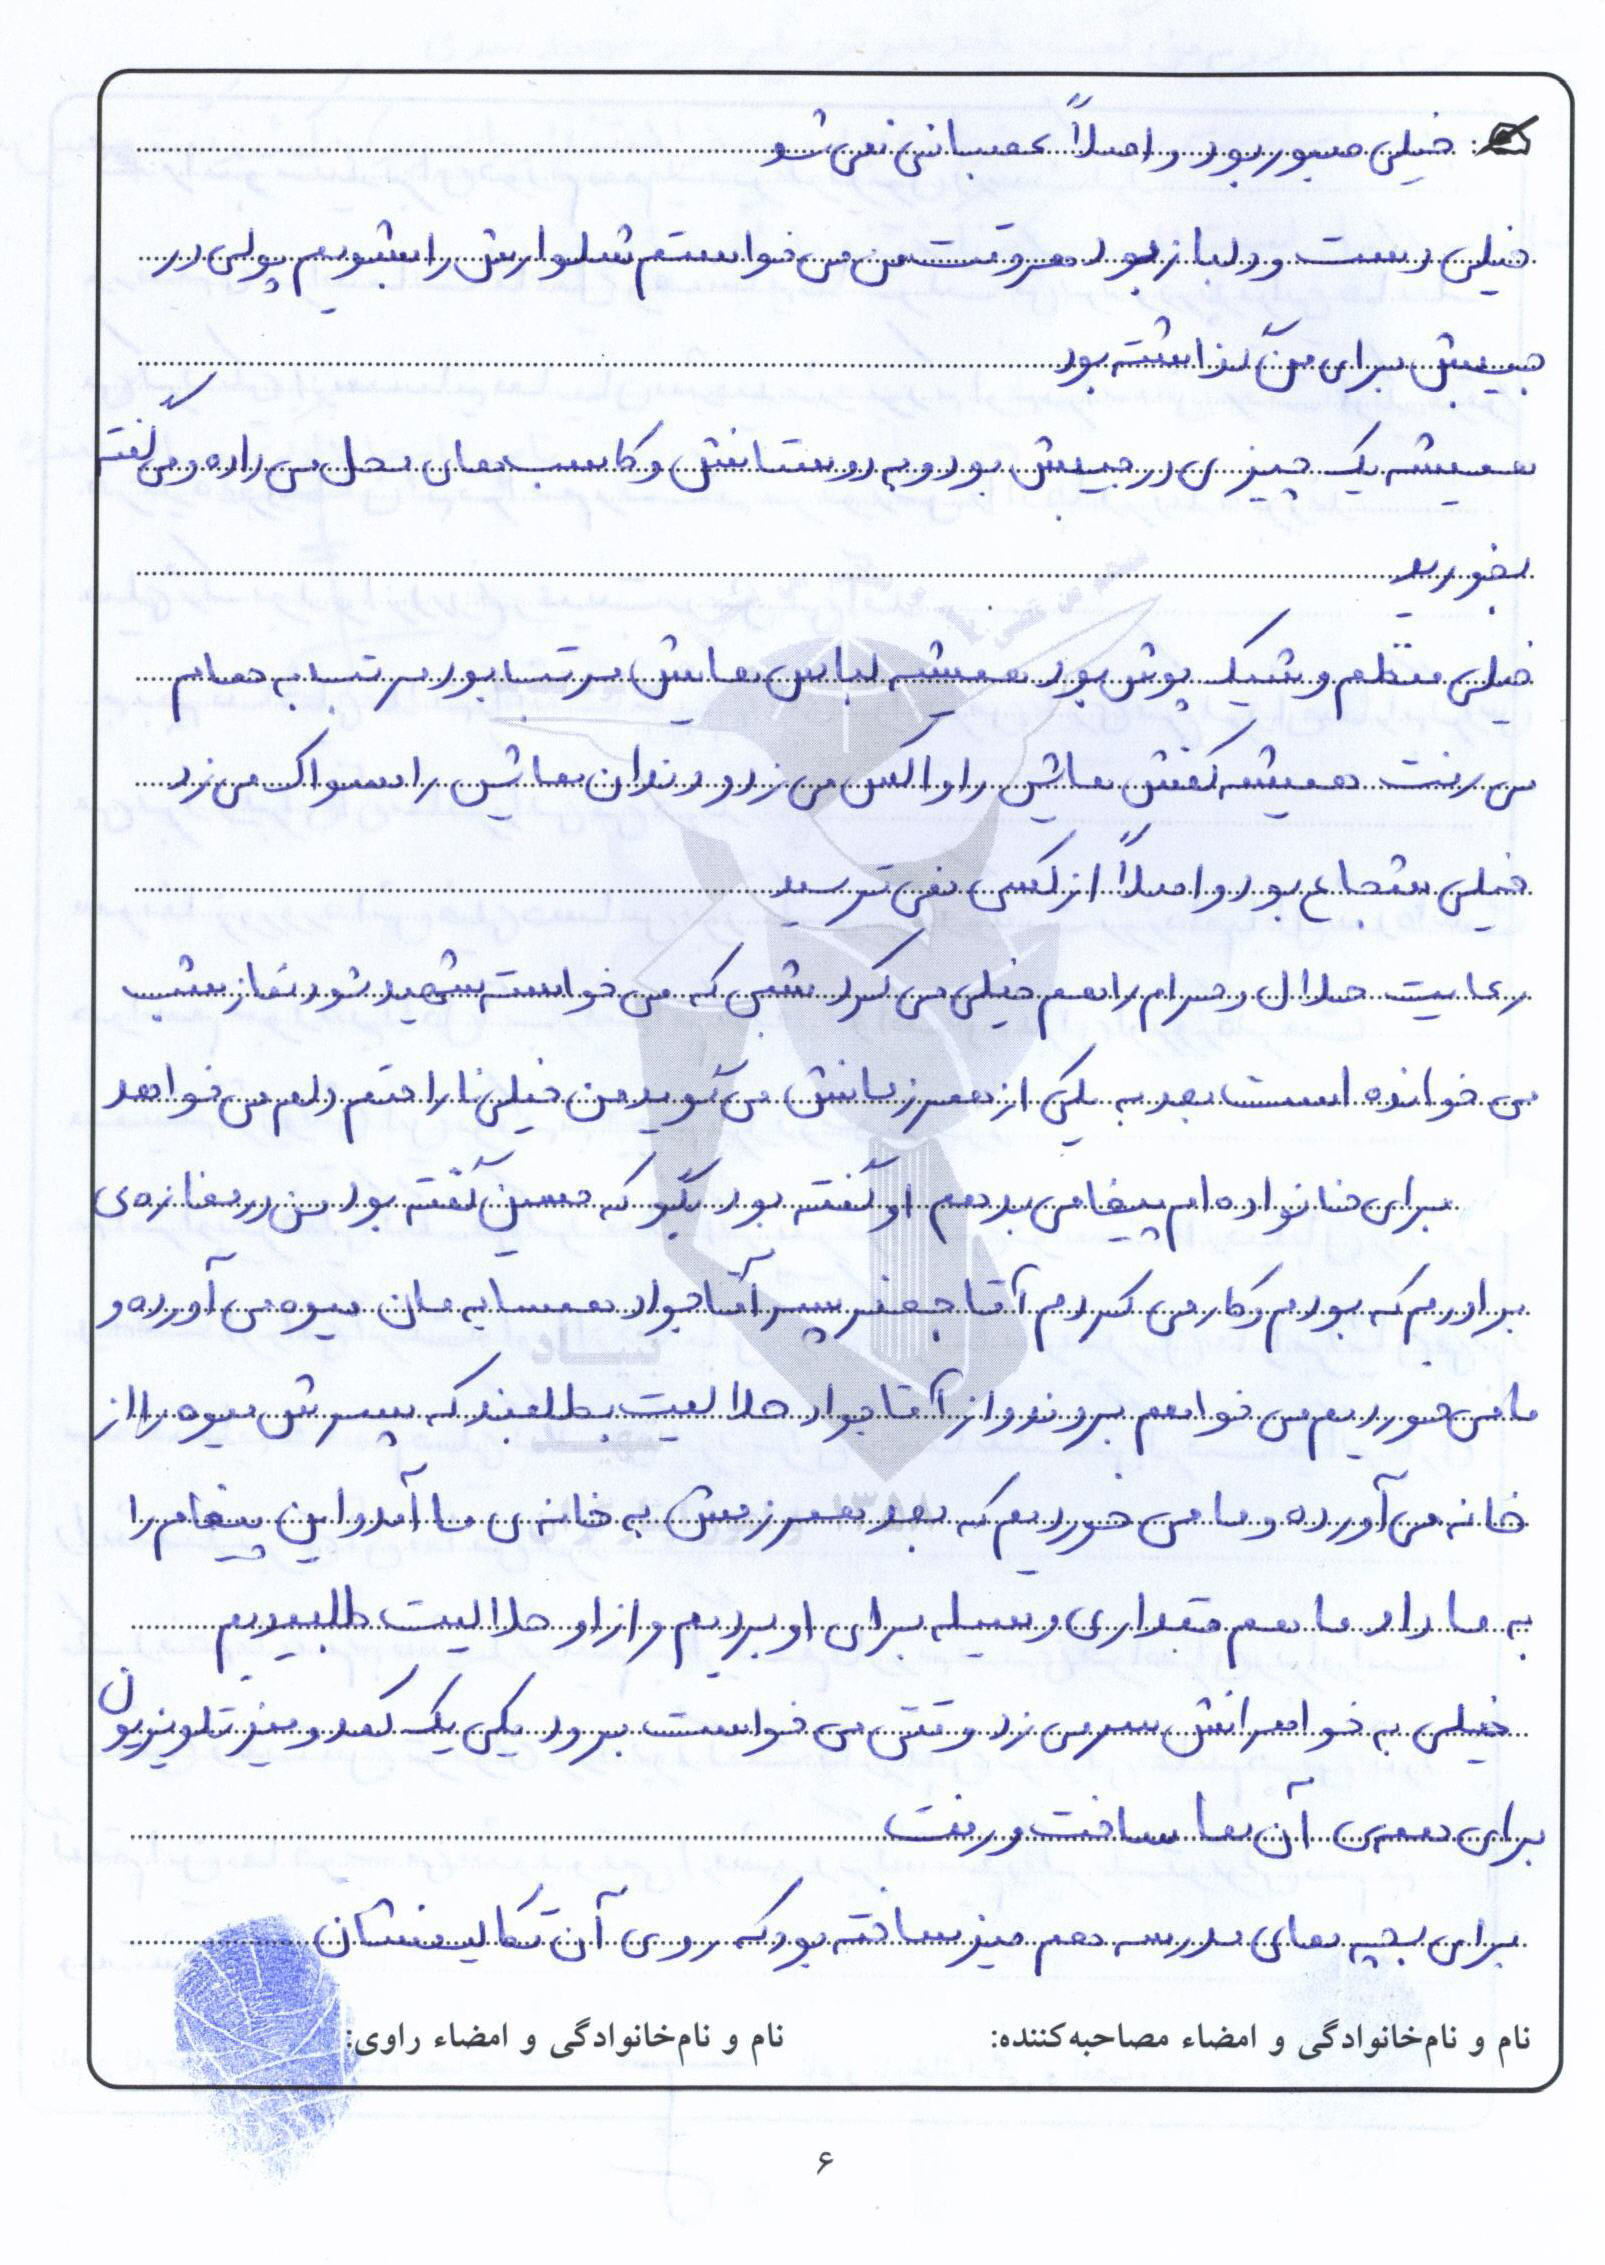 خیلی صبور بود و اصلاً عصبانی نمی شد
خیلی دست و دلباز بود هر وقت من می خواستم شلوارش را بشویم پولی در
جیبش برای من گذاشته بود
همیشه یک چیزی در جیبش بود و به دوستانش و کاسب های محل می داده و می گفته
بخورید
خیلی منظم و شیک پوش بود همیشه لباس هایش مرتب بود مرتب به حمام
می رفت همیشه کفش هایش را واکس می زد و دندان هایش را مسواک می زد
خیلی شجاع بود و اصلاً از کسی نمی ترسید
رعایت حلال و حرام را هم خیلی می کرد شبی که می خواسته شهید شود نماز شب
می خوانده است بعد به یکی از همرزمانش می گوید من خیلی ناراحتم دلم می خواهد
برای خانواده ام پیغامی بدهم او گفته بود بگو که حسین گفته بود من در مغازه ی
برادرم که بودم و کار می کردم آقا جعفر پسر آقا جواد همسایه مان میوه می آورده و
ما می خوردیم می خواهم بروند و از آقا جواد حلالیت بطلبند که پسرش میوه را از
خانه می آورده و ما می خوردیم که بعد همرزمش به خانه ی ما آمد و این پیغام را
به ما داد ما هم مقداری وسیله برای او بردیم و از او حلالیت طلبیدیم
خیلی به خواهرانش سر می زد وقتی می خواست برود یکی یک کمد و میز تلویزیون
برای همه ی آن ها ساخت و رفت
برای بچه های مدرسه هم میز ساخته بود که روی آن تکالیفشان
نام و نام‌خانوادگی و امضاء مصاحبه‌کننده: نام و نام‌خانوادگی و امضاء راوی:
۶